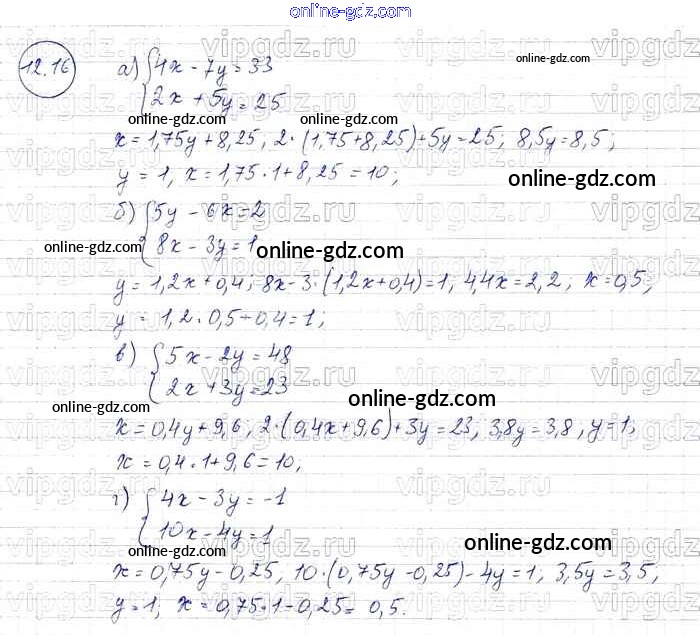 online-gdz.com
12.16
а) {4x - 7y = 33
{2x + 5y = 25
online-gdz.com
online-gdz.com
x = 1,75y + 8,25, 2·(1,75+8,25)+5y=25; 8,5y=8,5;
y = 1, x = 1,75·1+8,25=10;
online-gdz.com
б) {5y - 6x = 2
{8x - 3y = 1
online-gdz.com
online-gdz.com
y = 1,2x+0,4; 8x-3·(1,2x+0,4)=1, 4,4x=2,2; x=0,5;
y = 1,2·0,5+0,4=1;
в) {5x - 2y = 48
{2x + 3y = 23
online-gdz.com
online-gdz.com
x = 0,4y+9,6, 2·(0,4x+9,6)+3y=23; 3,8y=3,8, y=1;
x = 0,4·1+9,6=10;
г) {4x - 3y = -1
{10x - 4y = 1
online-gdz.com
online-gdz.com
x = 0,75y-0,25, 10·(0,75y-0,25)-4y=1; 3,5y=3,5,
y=1; x=0,75·1-0,25= 0,5.
vipgdz.ru